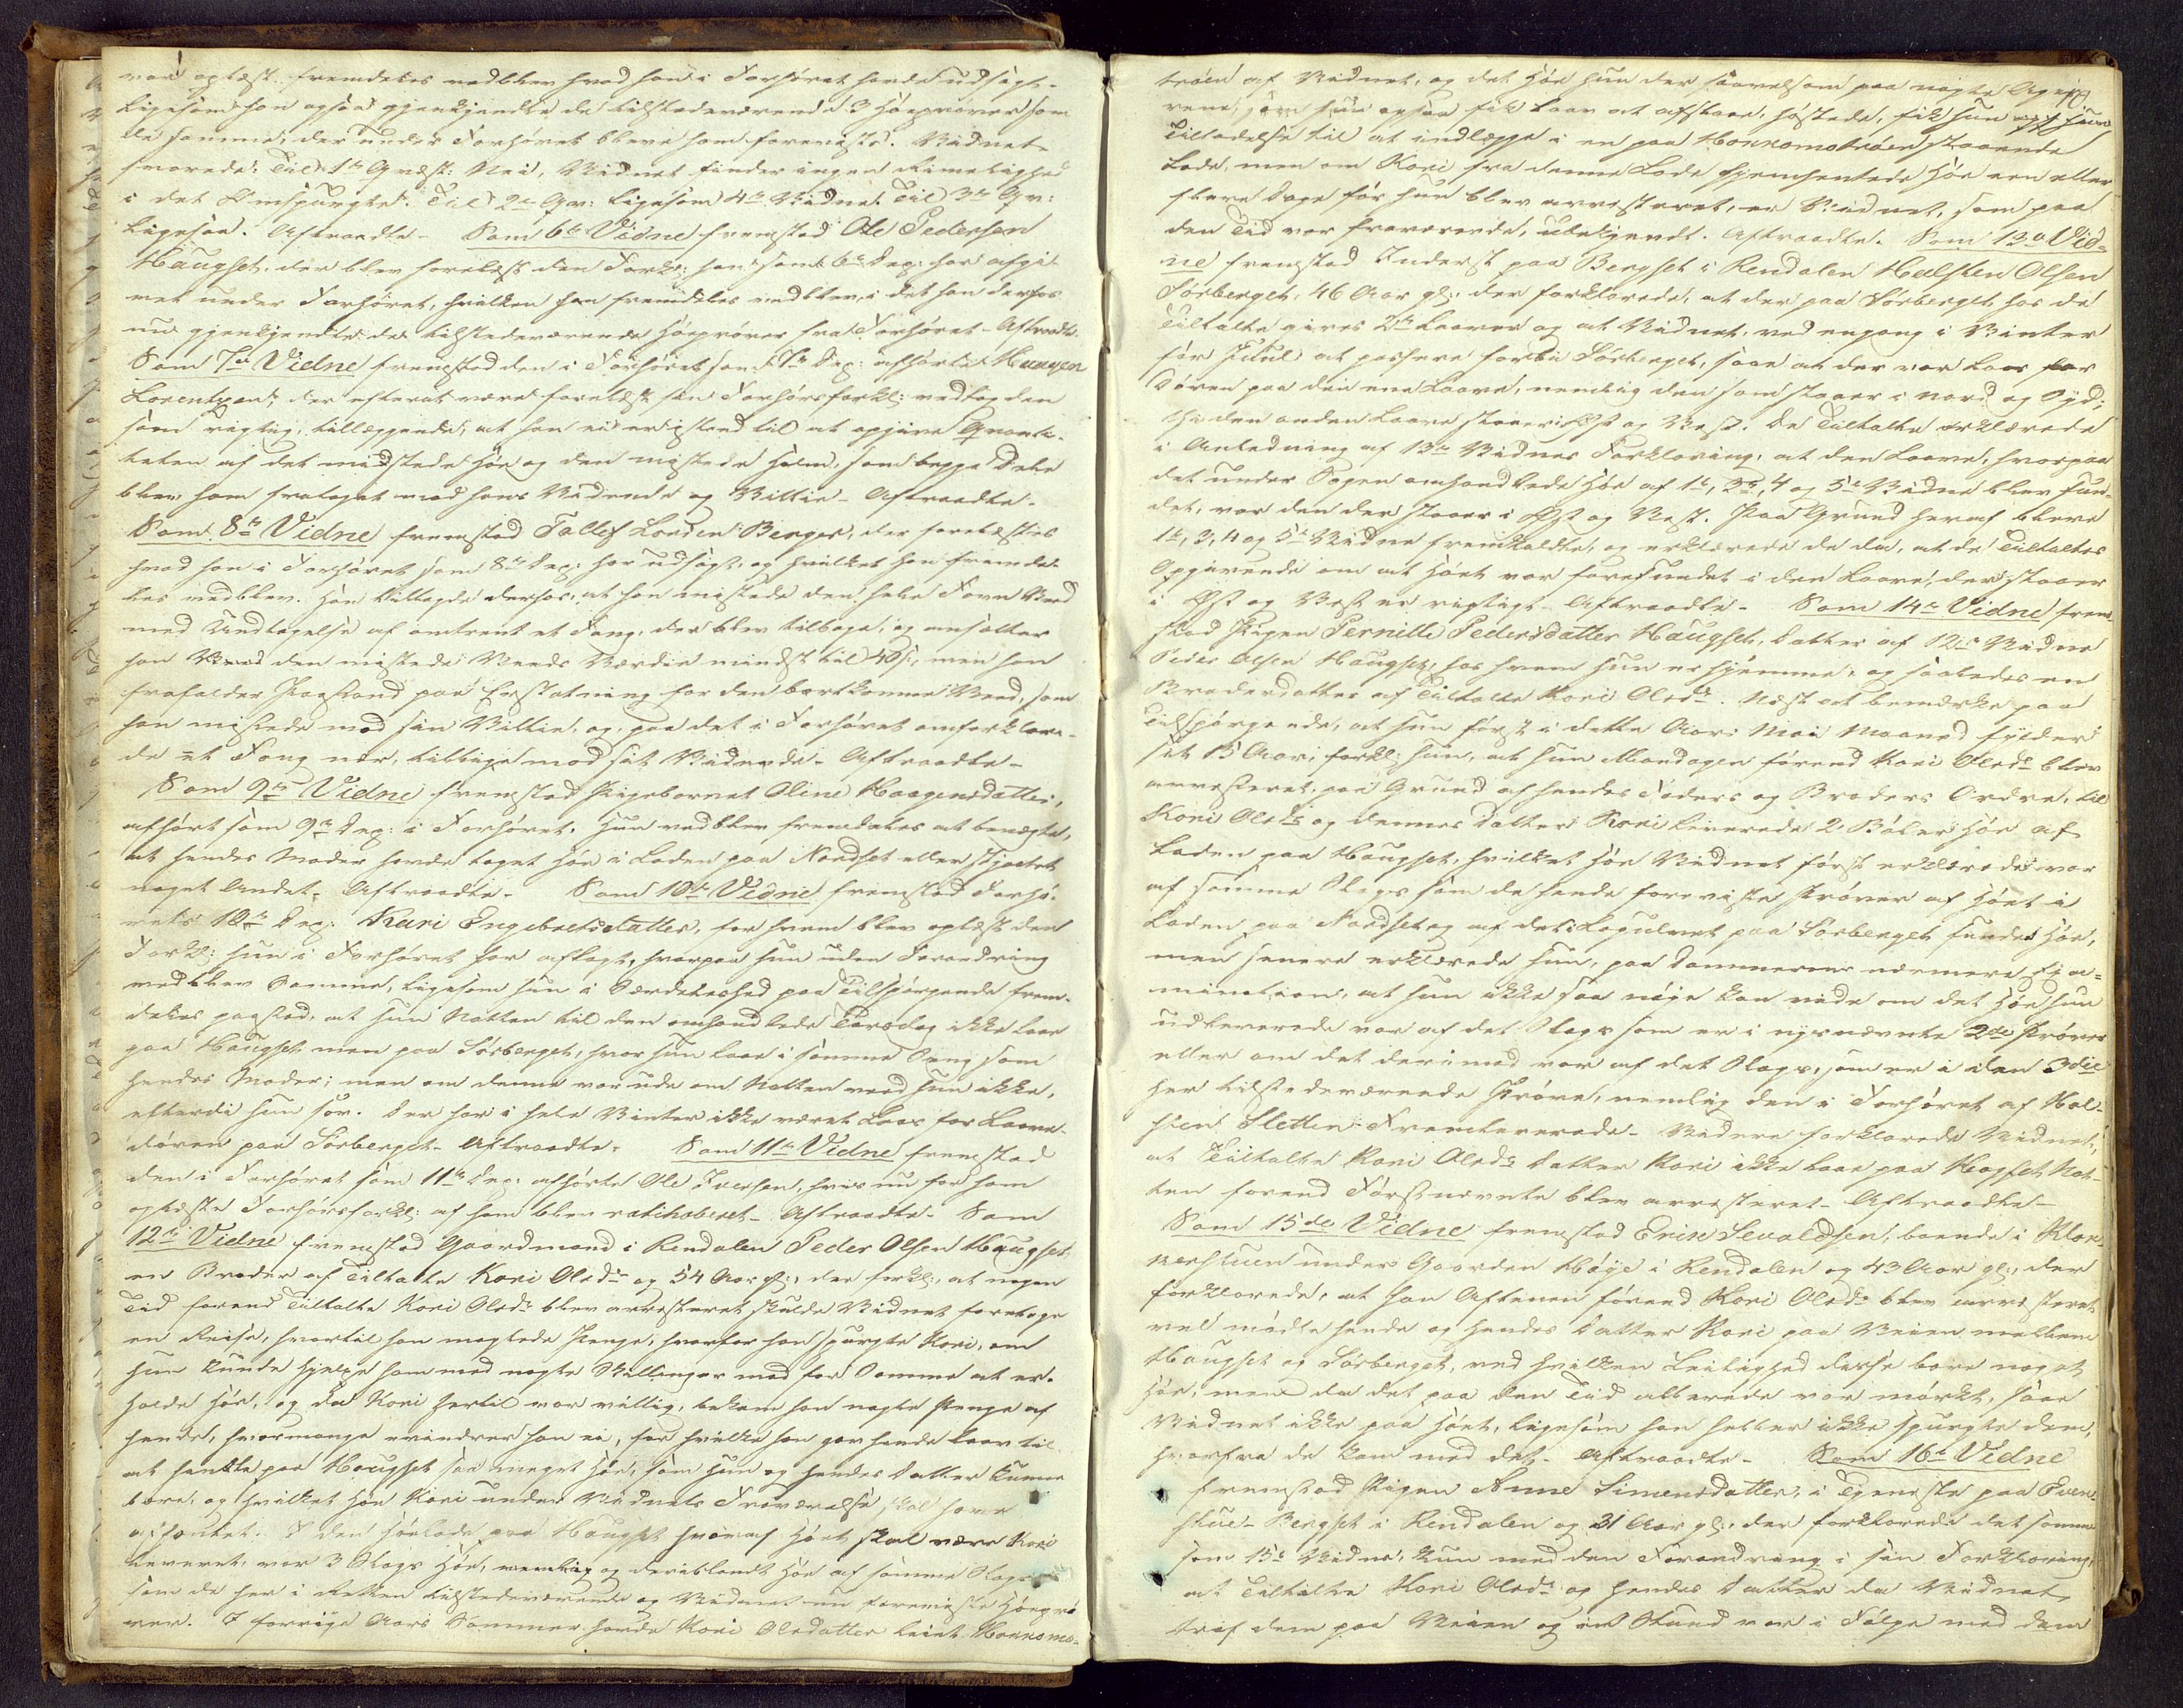 var oplæst fremdeles vedblev hvad han i Forhöret havde udsagt.
Ligesom han ogsaa gjenkjendte de tilstedeværende 3 Höeprøver som
de samme, der under Forhöret bleve ham foreviste. Vidnet
svarede: Til 1te Qvæst: Nei, Vidnet finder ingen Rimelighed
i det Omspurgte. Til 2det Qv: ligesom 4de Vidne. Til 3die Qv:
ligesaa. Aftraadte. Som 6te Vidne fremstod Ole Pedersen
Haugset, der blev forelæst den Forkl: han som 6te Dep: har afgi-
vet under Forhöret, hvilken han fremdeles vedblev, i det han derhos
nu gjenkjendte de tilstedeværende Höeprøver fra Forhöret. Aftraadte.
Som 7de Vidne fremstod den i Forhöret som 7de Dep: afhörte
Lorentzen, der efter at være forelæst sin Forhörsforkl: vedtog den
som rigtig, tillæggende, at han ei er istand til at opgive Qvanti-
teten af det mistede Höe og den mistede Halm, som begge Dele
blev ham frataget mod hans Vidende og Villie. Aftraadte.
Som 8de Vidne fremstod Tollef Berger, der forelæstes
hvad han i Forhöret som 8de Dep: har udsagt, og hvilket han fremde-
les vedblev. Han tillagde derhos, at han mistede den hele Favn Veed
med Undtagelse af omtrent et Fang, der blev tilbage, og ansætter
han den mistede Veeds Værdie mindst til 40 s, men han
frafalder Paastand paa Erstatning for den bortkomne Veed, som
han mistede mod sin Villie, og, paa det i Forhöret omforklare-
de et Fang nær, tillige mod sit Vidende. Aftraadte.
Som 9de Vidne fremstod Pigebarnet Oline Haagensdatter,
afhört som 9de Dep: i Forhöret. Hun vedblev fremdeles at benægte,
at hendes Moder havde taget Höe i Laden paa Nordset eller stjaalet
noget Andet. Aftraadte. Som 10de Vidne fremstod Forhö-
rets 10de Dep: Kari Engebretsdatter, for hvem blev oplæst den
Forkl: hun i Forhöret har aflagt, hvorpaa hun uden Forandring
vedblev Samme, ligesom hun i Særdeleshed paa Tilspörgende frem-
deles paastod, at hun Natten til den omhandlede Torsdag ikke laae
paa Haugset men paa Sörberget, hvor hun laae i samme Seng som
hendes Moder; men om denne var ude om Natten veed hun ikke,
efterdi hun sov. Der har i hele Vinter ikke været Laas for Laave-
dören paa Sörberget. Aftraadte. Som 11te Vidne fremstod
den i Forhöret som 11te Dep: afhörte Ole Iversen, hvis nu for ham
oplæste Forhörsforkl: af ham blev ratihaberet. Aftraadte. Som
12te Vidne fremstod Gaardmand i Rendalen Peder Olsen Haugset,
en Broder af Tiltalte Kari Olsdr og 54 Aar gl:, der forkl:, at nogen
Tid forend Tiltalte Kari Olsdr blev arresteret skulde Vidnet foretage
en Reise, hvortil han manglede Penge, hvorfor han spurgte Kari, om
hun kunde hjelpe ham med nogle Skillinger mod for Samme at er-
holde Höe, og da Kari hertil var villig, bekom han nogle Penge af
hende, hvormange erindrer han ei, for hvilke han gav hende Lov til
at hente paa Haugset saa meget Höe, som hun og hendes Datter kunne
bære, og hvilket Höe Kari under Vidnets Fraværelse skal have
afhentet. I den Hölade paa Haugset hvoraf Höet skal være Kari
leveret, var 3 Slags Höe, nemlig og deriblandt Höe af samme Slags
som de her i Retten tilstedeværende og Vidnet nu foreviste Höeprö-
ver. I forrige Aars Sommer havde Kari Olsdatter leiet
tröen af Vidnet, og det Höe hun der saavelsom paa nogle
rene, som hun ogsaa fik Lov at afslaae, höstede, fik hun
Tilladelse til at indlægge i en paa staaende
Lade, men om Kari fra denne Lade hjemhentede Höe een eller
flere Dage för hun blev arresteret, er Vidnet, som paa
den Tid var fraværende, ubekjendt. Aftraadte. Som 13de Vid-
ne fremstod Inderst paa Bergset i Rendalen Halsten Olsen
Sörberget, 46 Aar gl:, der forklarede, at der paa Sörberget hos de
Tiltalte gives 2de Laaver og at Vidnet ved engang i Vinter
för Juul at passere forbi Sörberget, saae at der var Laas for
Dören paa den ene Laave, nemlig den som staaer i Nord og Syd;
thi den anden Laave staaer i Öst og Vest. De Tiltalte erklærede
i Anledning af 13de Vidnes Forklaring, at den Laave, hvorpaa
det under Sagen omhandlede Höe af 1te, 3die, 4 og 5te Vidne blev fun-
det, var den der staaer i Öst og Vest. Paa Grund heraf bleve
1te, 3, 4 og 5te Vidne fremkaldte, og erklærede de da, at de Tiltaltes
Opgivende om at Höet var forefundet i den Laave, der staaer
i Öst og Vest er rigtigt. Aftraadte. Som 14de Vidne frem-
stod Pigen Pernille Pedersdatter Haugset, Datter af 12te Vidne
Peder Olsen Haugset, hos hvem hun er hjemme, og saaledes en
Broderdatter af Tiltalte Kari Olsdr. Næst at bemærke paa
Tilspörgende, at hun först i dette Aars Mai Maaned fylder
sit 15 Aar, forkl: hun, at hun Mandagen förend Kari Olsdr blev
arresteret, paa Grund af hendes Faders og Broders Ordre, til
Kari Olsdr og dennes Datter Kari leverede 2 Börer Höe af
Laden paa Haugset, hvilket Höe Vidnet först erklærede var
af samme Slags som de hende foreviste Pröver af Höet i
Laden paa Nordset og af det i paa Sörberget fundet Höe,
men senere erklærede hun, paa Dommerens nærmere Exa-
mination, at hun ikke saa nöie kan vide om det Höe hun
udleverede var af det Slags som er i nysnævnte 2de Pröver
eller om det derimod var af det Slags, som er i den 3die
her tilstedeværende Pröve, nemlig den i Forhöret af Hal-
sten Sletten fremleverede. Videre forklarede Vidnet,
at Tiltalte Kari Olsdrs Datter Kari ikke laae paa Hagset Nat-
ten forend Förstnævnte blev arresteret. Aftraadte.
Som 15de Vidne fremstod Erik Sevaldsen, boende i
under Gaarden Höye i Rendalen og 43 Aar gl:, der
forklarede, at han Aftenen förend Kari Olsdr blev arresteret
vel mödte hende og hendes Datter Kari paa Veien mellem
Haugset og Sörberget, ved hvilken Leilighed disse bare noget
Höe, men da det paa den Tid allerede var mörkt, saae
Vidnet ikke paa Höet, ligesom han heller ikke spurgte dem,
hvorfra de kom med det. Aftraadte. Som 16de Vidne
fremstod Pigen Anne Simensdatter, i Tjeneste paa Even-
stue-Bergset i Rendalen og 31 Aar gl:, der forklarede det samme
som 15de Vidne, kun med den Forandring i sin Forklaring,
at Tiltalte Kari Olsdr og hendes Datter da Vidnet
traf dem paa Veien og en Stund var i Fölge med dem